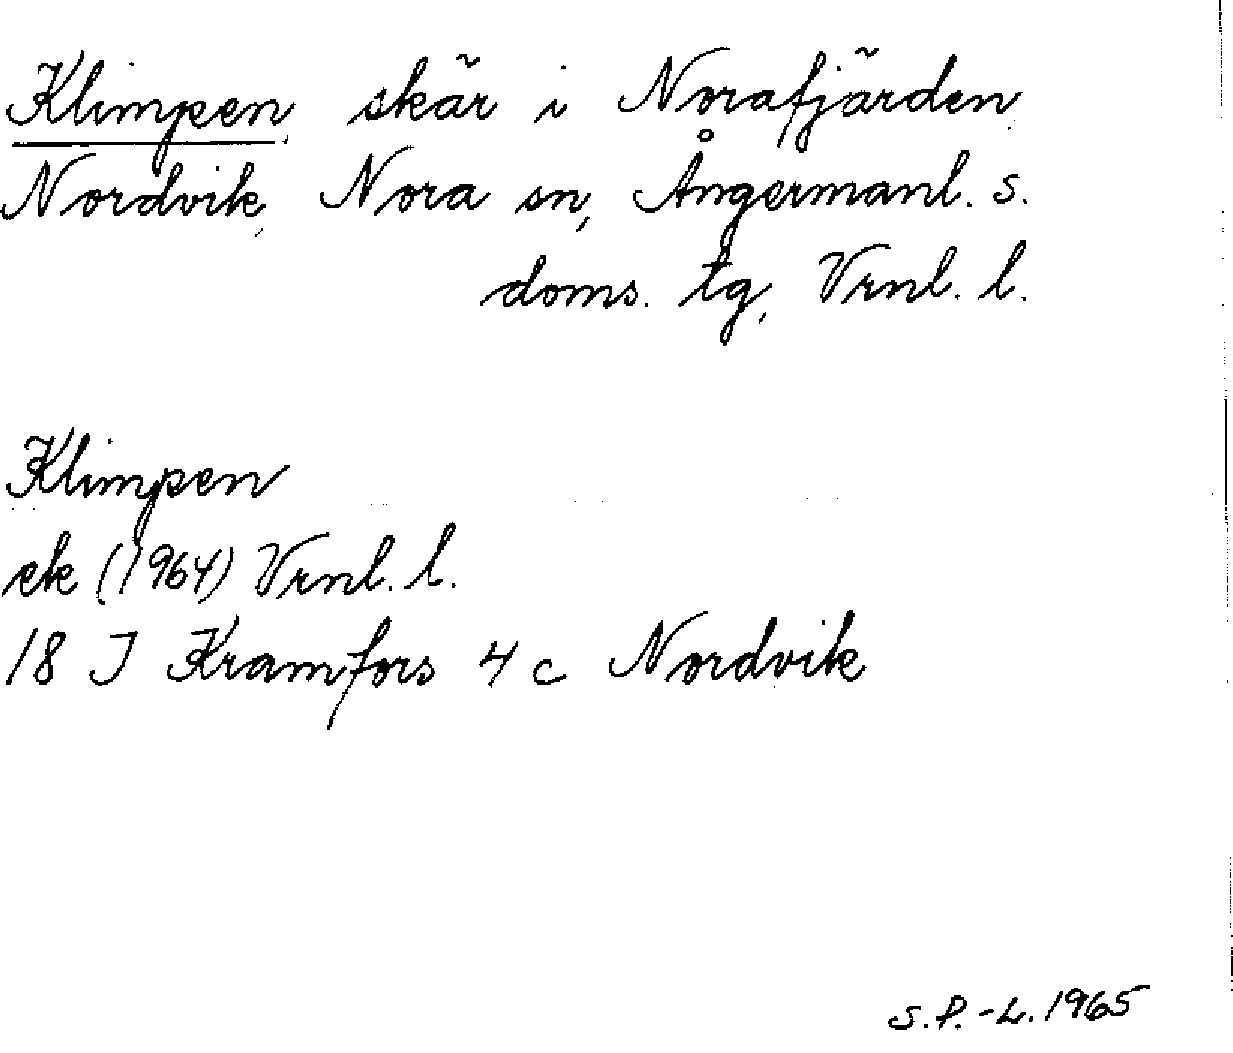 Klimpen, skär i Norafjärden
Nordvik, Nora sn, Ångermanl. s.
doms. tg, Vrnl. l.
Klimpen
ek (1964) Vrnl. l.
18 J Kramfors 4 c Nordvik
S.P.-L. 1965